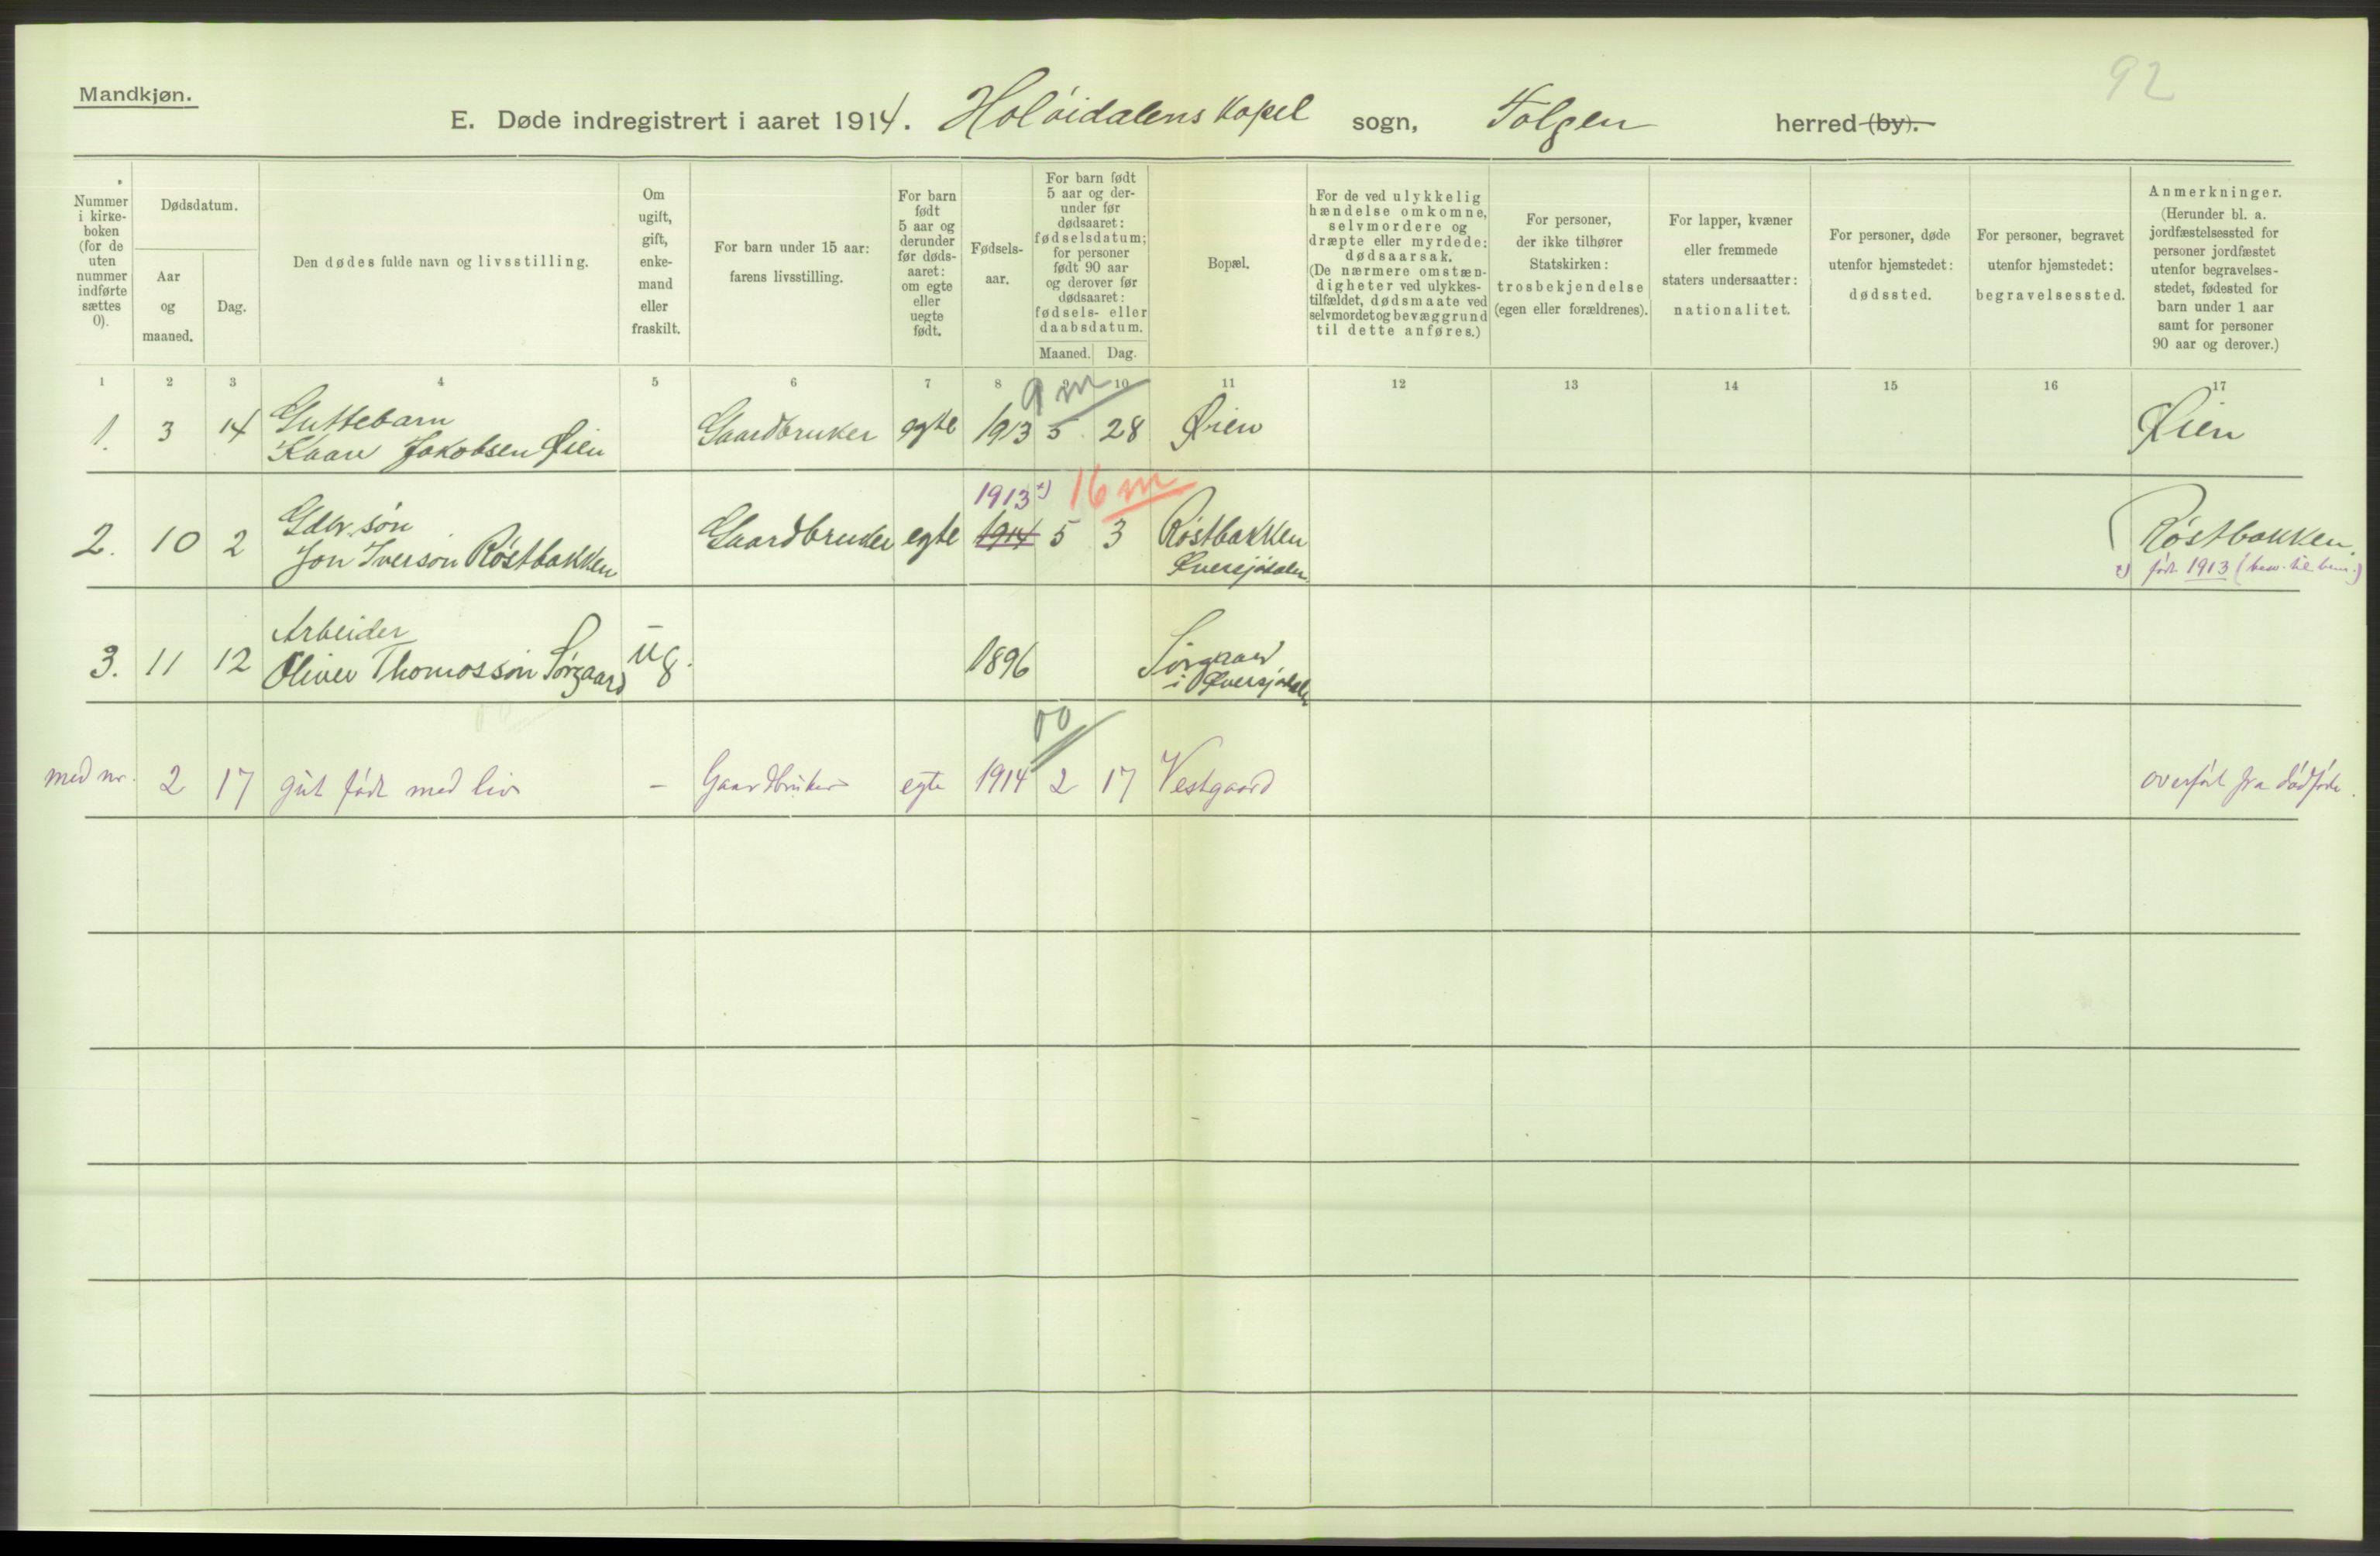 92
Mandkjøn.
E. Døde indregistrert i aaret 1914. Holóidalens Kapel sogn, Tolgen herred (by).
Nummer i kirke-boken (for de uten nummer indførte sættes 0).
Dødsdatum.
Aar og maaned.
Dag.
Den dødes fulde navn og livsstilling.
Om ugift, gift, enke-mand eller fraskilt.
For barn under 15 aar: farens livsstilling.
For barn født 5 aar og derunder før døds-aaret: om egte eller uegte født.
Fødsels-aar.
For barn født 5 aar og der-under før dødsaaret: fødselsdatum; for personer født 90 aar og derover før dødsaaret: fødsels- eller daabsdatum.
Maaned. Dag.
Bopæl.
For de ved ulykkelig hændelse omkomne, selvmordere og dræpte eller myrdede: dødsaarsak. (De nærmere omstæn-digheter ved ulykkes-tilfældet, dødsmaate ved selvmordet og bevæggrund til dette anføres.)
For personer, der ikke tilhører Statskirken: trosbekjendelse (egen eller forældrenes).
For lapper, kvæner eller fremmede staters undersaatter: nationalitet.
For personer, døde utenfor hjemstedet: dødssted.
For personer, begravet utenfor hjemstedet: begravelsessted.
Anmerkninger. (Herunder bl. a. jordfæstelsessted for personer jordfæstet utenfor begravelses-stedet, fødested for barn under 1 aar samt for personer 90 aar og derover.)
1 2 3 4 5 6 7 8 9 10 11 12 13 14 15 16 17
9 m
Guttebarn
1. 3 14 Kaare Jakobsen Øien Gaardbruker egte 1913 5 28 Øien Øien
1913 x) 16 m
Gdbr. søn
2. 10 2 Jon Iversøn Róstbakken Gaardbruker egte 1914 5 3 Róstbakken Róstbakken.
Øversjødalen x) født 1913
Arbeider
3. 11 12 Oliver Thomassøn Sørgaard ug. 1896 Sørgaard
i Øversjødalen
00
med nr. 2 17 gut født med liv – Gaardbruker egte 1914 2 17 Vestgaard overført fra dødføde.